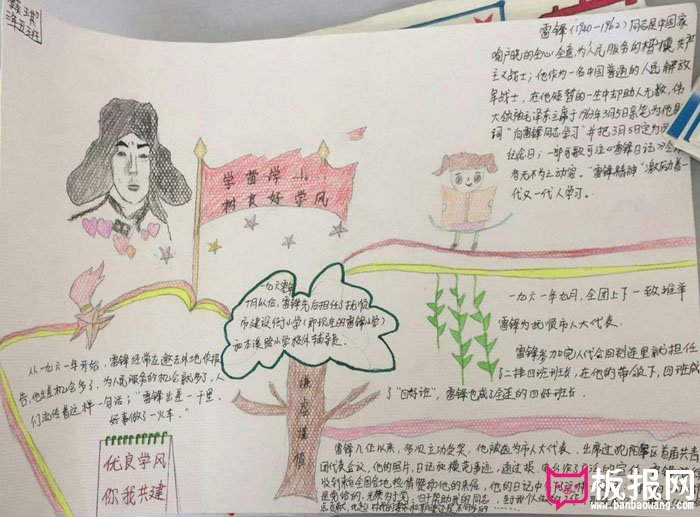 三年五班
雷锋(1940-1962)同志是中国家
喻户晓的全心全意为人民服务的楷模,共产
主义战士;他作为一名中国普通的人民解放
军战士,在他短暂的一生中却助人无数,伟
大领袖毛泽东主席于1963年3月5日亲笔为他题
词“向雷锋同志学习”并把3月5日定为
纪念日;一部可歌可泣《雷锋日记》
者无不为之动容。“雷锋精神”激励着一
代又一代人学习。
学雷锋
树良好学风
一九六
月以后,雷锋先后担任了抚顺
市建设街小学(即现在的雷锋小学)
和本溪路小学校外辅导员。
谦虚谨慎
从一九六一年开始,雷锋经常应邀去外地作报
告,他出差机会多了,为人民服务的机会就多了,人
们流传着这样一句话:“雷锋出差一千里,
好事做了一火车。”
优良学风
你我共建
一九六一年九月,全团上下一致推举
雷锋为抚顺市人大代表。
雷锋参加完人代会回到连里就担任
了二排四班班长,在他的带领下,四班成
了“四好班”,雷锋也成了全连的四好班长。
雷锋入伍以来,多次立功受奖,他被选为市人大代表,出席过沈阳军区首届共青
团代表会议,他的照片、日记和模范事迹,通过报
收到粉全国各地
是党给的,光荣归于党,归于帮助我的同志
板报网
Banbaowang.com